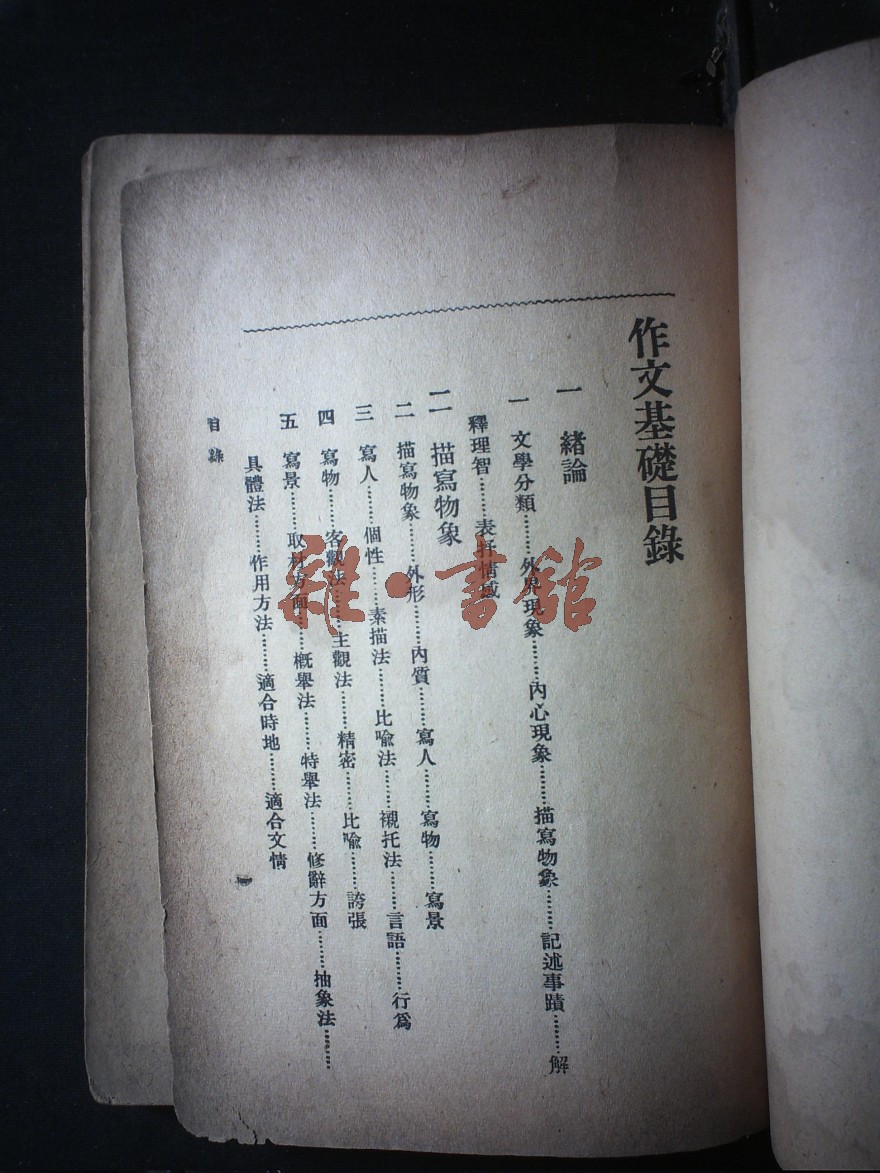 作文基礎目錄
一 緒論
一 文學分類………外界現象………內心現象………描寫物象………記述事蹟………解
釋理智………表抒情感
二 描寫物象
二 描寫物象………外形………內質………寫人………寫物………寫景
三 寫人………個性………素描法………比喻法………襯托法………言語………行爲
四 寫物………客觀法………主觀法………精密………比喻………誇張
五 寫景………取材方面………概舉法………特舉法………修辭方面………抽象法………
具體法………作用方法………適合時地………適合文情
目錄
一
雜·書館